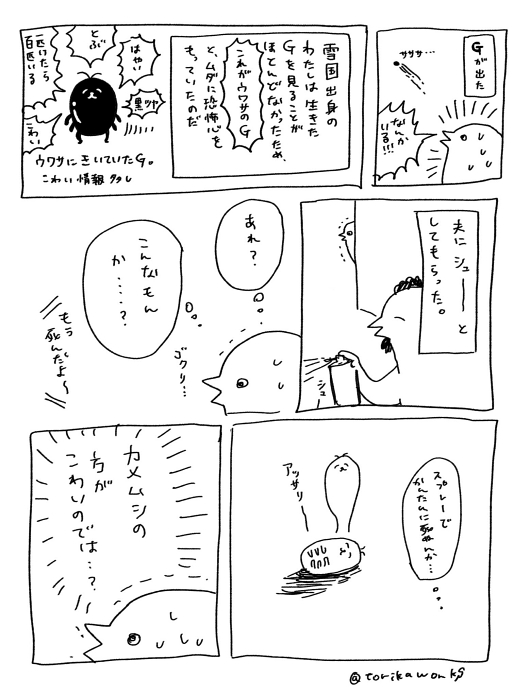 Gが出た
サササ…
なんか
いる!!!
雪国出身の
わたしは生きた
Gを見ることが
ほとんどなかったため、
これがウワサのG
と、ムダに恐怖心を
もっていたのだ
はやい
とぶ
一匹いたら
百匹いる
黒ツヤ
こわい
ウワサにきいていたG。
こわい情報多し
夫にシューーと
してもらった。
シュー
あれ?
こんなもん
か……?
ゴクリ…
もう
死んだよ〜
スプレーで
かんたんに死ぬんか…
アッサリー
カメムシの
方が
こわいのでは…?
@torikaworks